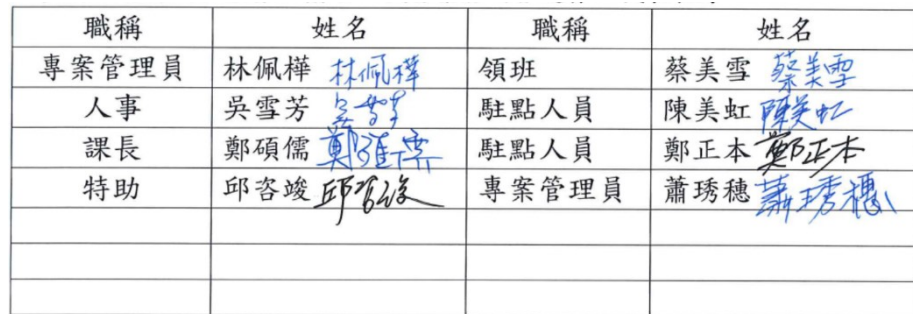 職稱 姓名 職稱 姓名
專案管理員 林佩樺 林佩樺 領班 蔡美雪 蔡美雪
人事 吳雪芳 吳雪芳 駐點人員 陳美虹 陳美虹
課長 鄭碩儒 駐點人員 鄭正本 鄭正本
特助 邱咨竣 邱咨竣 專案管理員 蕭琇穗 蕭琇穗